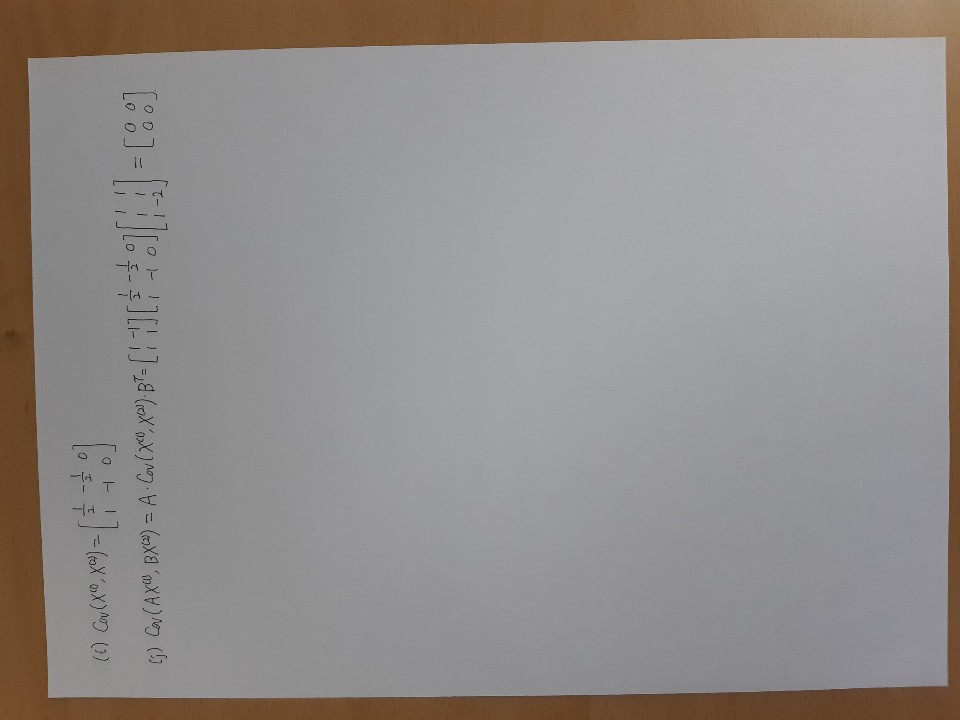 (i) Cov(X⁽¹⁾, X⁽²⁾) = [1/2 -1/2 0; 1 -1 0]
(j) Cov(AX⁽¹⁾, BX⁽²⁾) = A · Cov(X⁽¹⁾, X⁽²⁾) · Bᵀ = [1 -1; 1 1] [1/2 -1/2 0; 1 -1 0] [1 1; 1 1; 1 -2] = [0 0; 0 0]